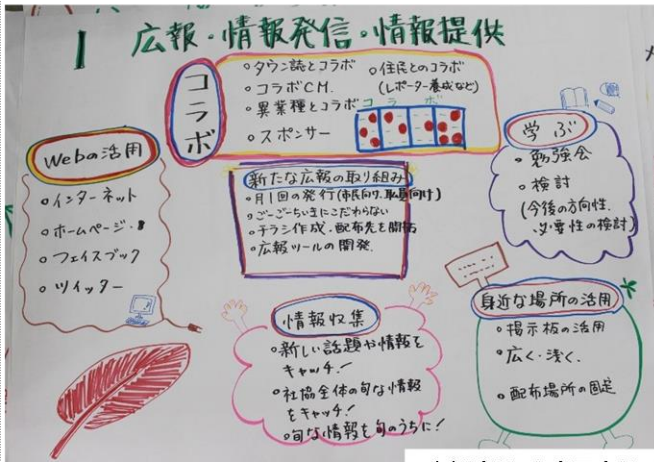 1 広報・情報発信・情報提供
コラボ
○タウン誌とコラボ
○コラボCM.
○異業種とコラボ
○スポンサー
○住民とのコラボ
(レポーター養成など)
コラボ
Webの活用
○インターネット
○ホームページ・
○フェイスブック
○ツイッター
新たな広報の取り組み
○月1回の発行(市民向け、職員向け)
○ごーごーちいきにこだわらない
○チラシ作成・配布先を開拓
○広報ツールの開発.
学ぶ
○勉強会
○検討
(今後の方向性.
必要性の検討)
情報収集
○新しい話題や情報を
キャッチ!
○社協全体の旬な情報
をキャッチ!
○旬な情報を旬のうちに!
身近な場所の活用
○掲示板の活用
○広く・浅く.
○配布場所の固定